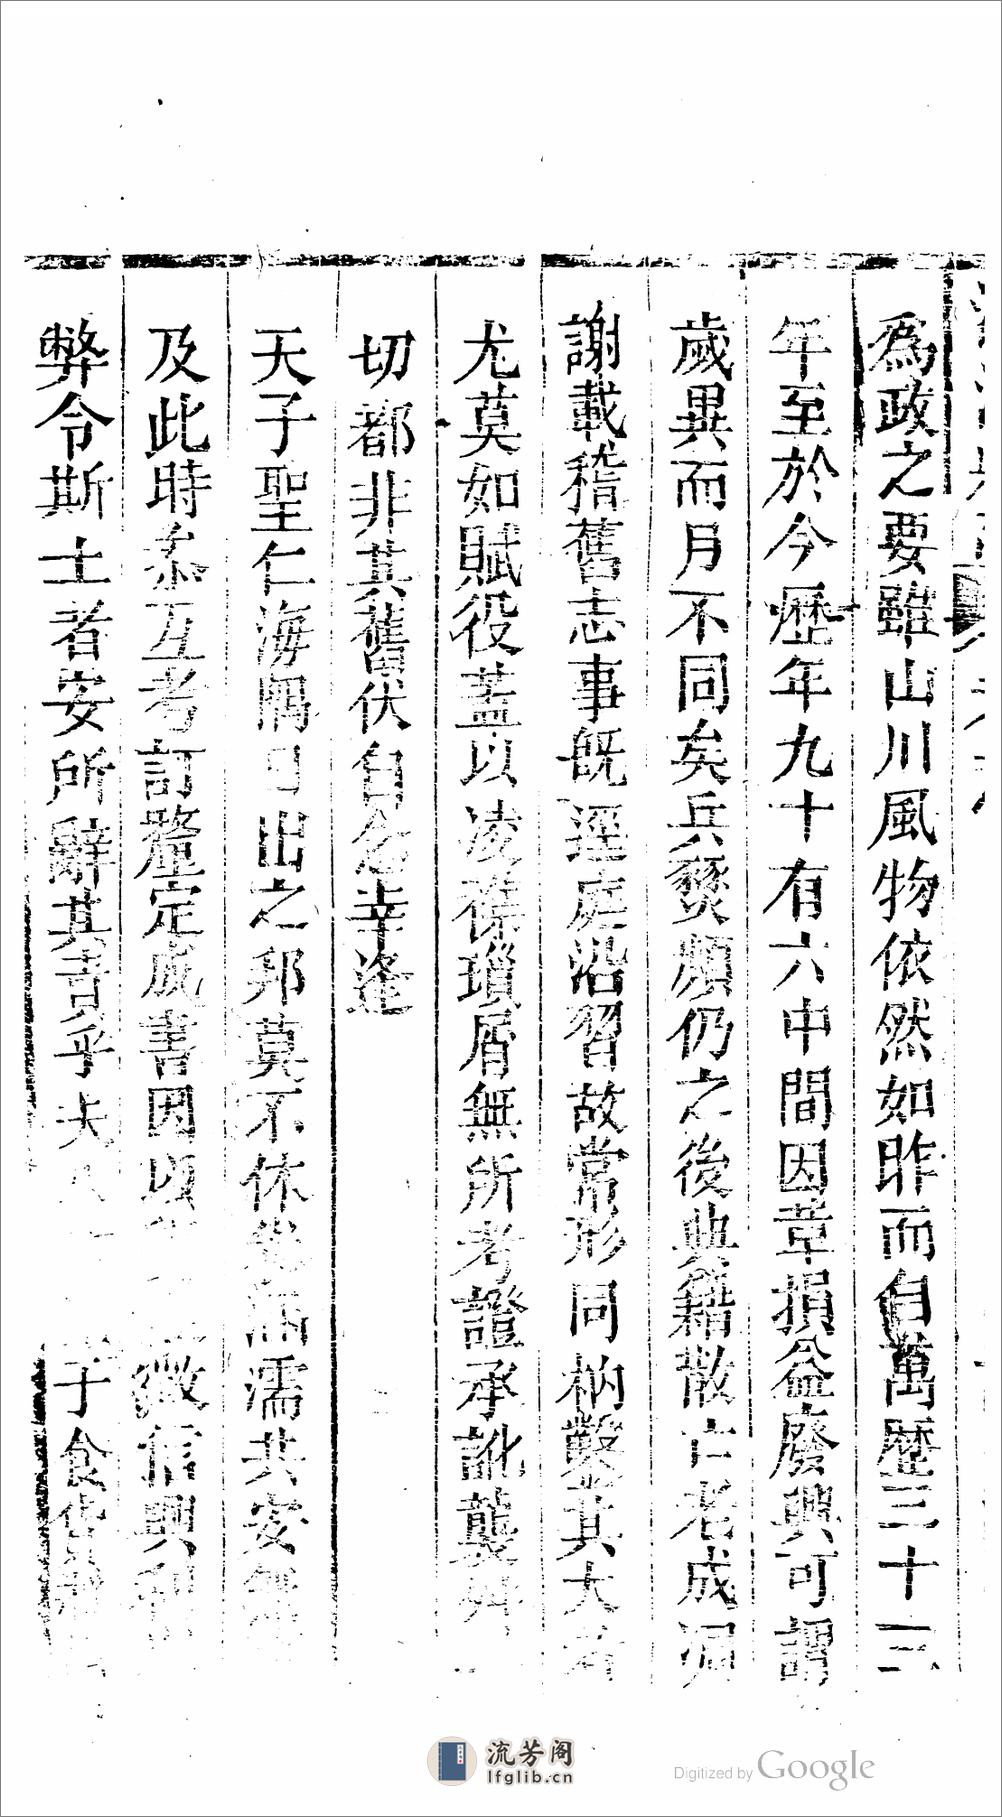 為政之要雖山川風物依然如昨而自萬歷三十三
年至於今歷年九十有六中間因革損益廢興可謂
歲異而月不同矣兵燹頻仍之後典籍散亡老成凋
謝載稽舊志事既逕庭沿習故常形同枘鑿其大者
尤莫如賦役蓋以凌雜瑣屑無所考證承訛襲舛
切都非其舊伏自念幸逢
天子聖仁海隅日出之邦莫不休養涵濡共安無
及此時叅互考訂釐定成書因以 徵信興利
弊令斯土者安所辭其責乎夫 子食
流芳阁
lfglib.cn
Digitized by Google